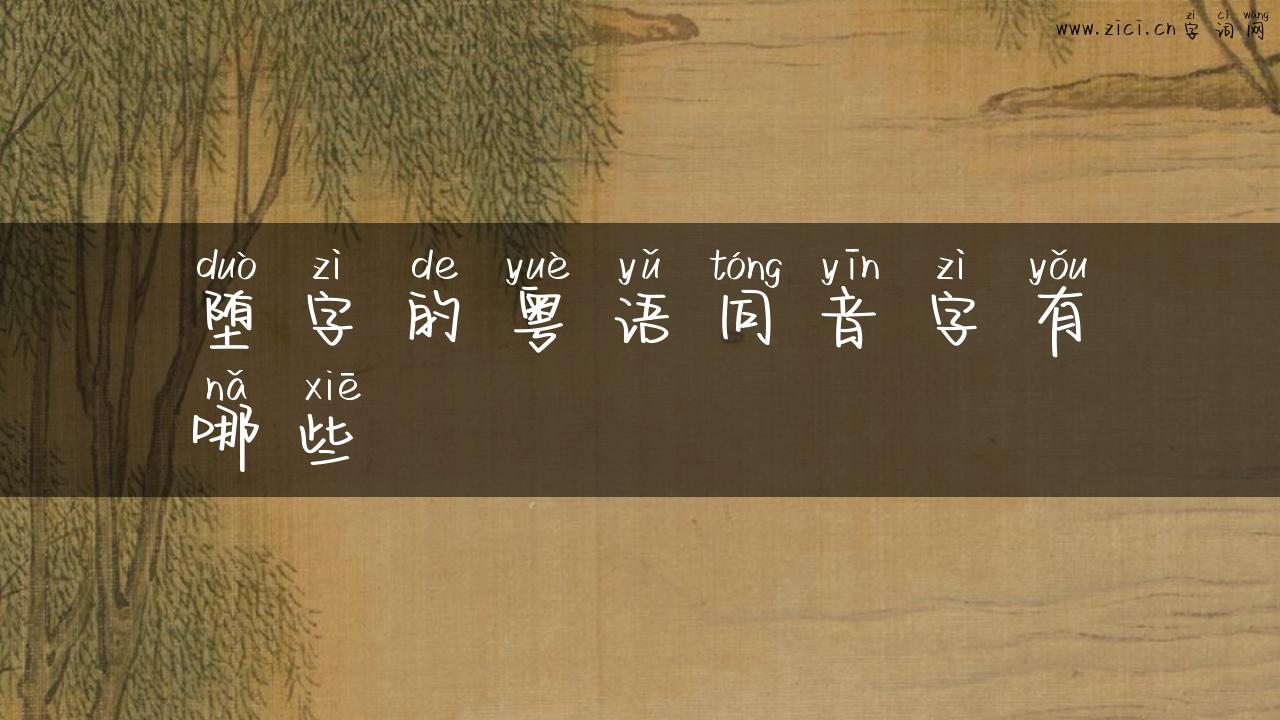 zì cí wǎng
www.zici.cn 字词网
duò zì de yuè yǔ tóng yīn zì yǒu
堕字的粤语同音字有
nǎ xiē
哪些